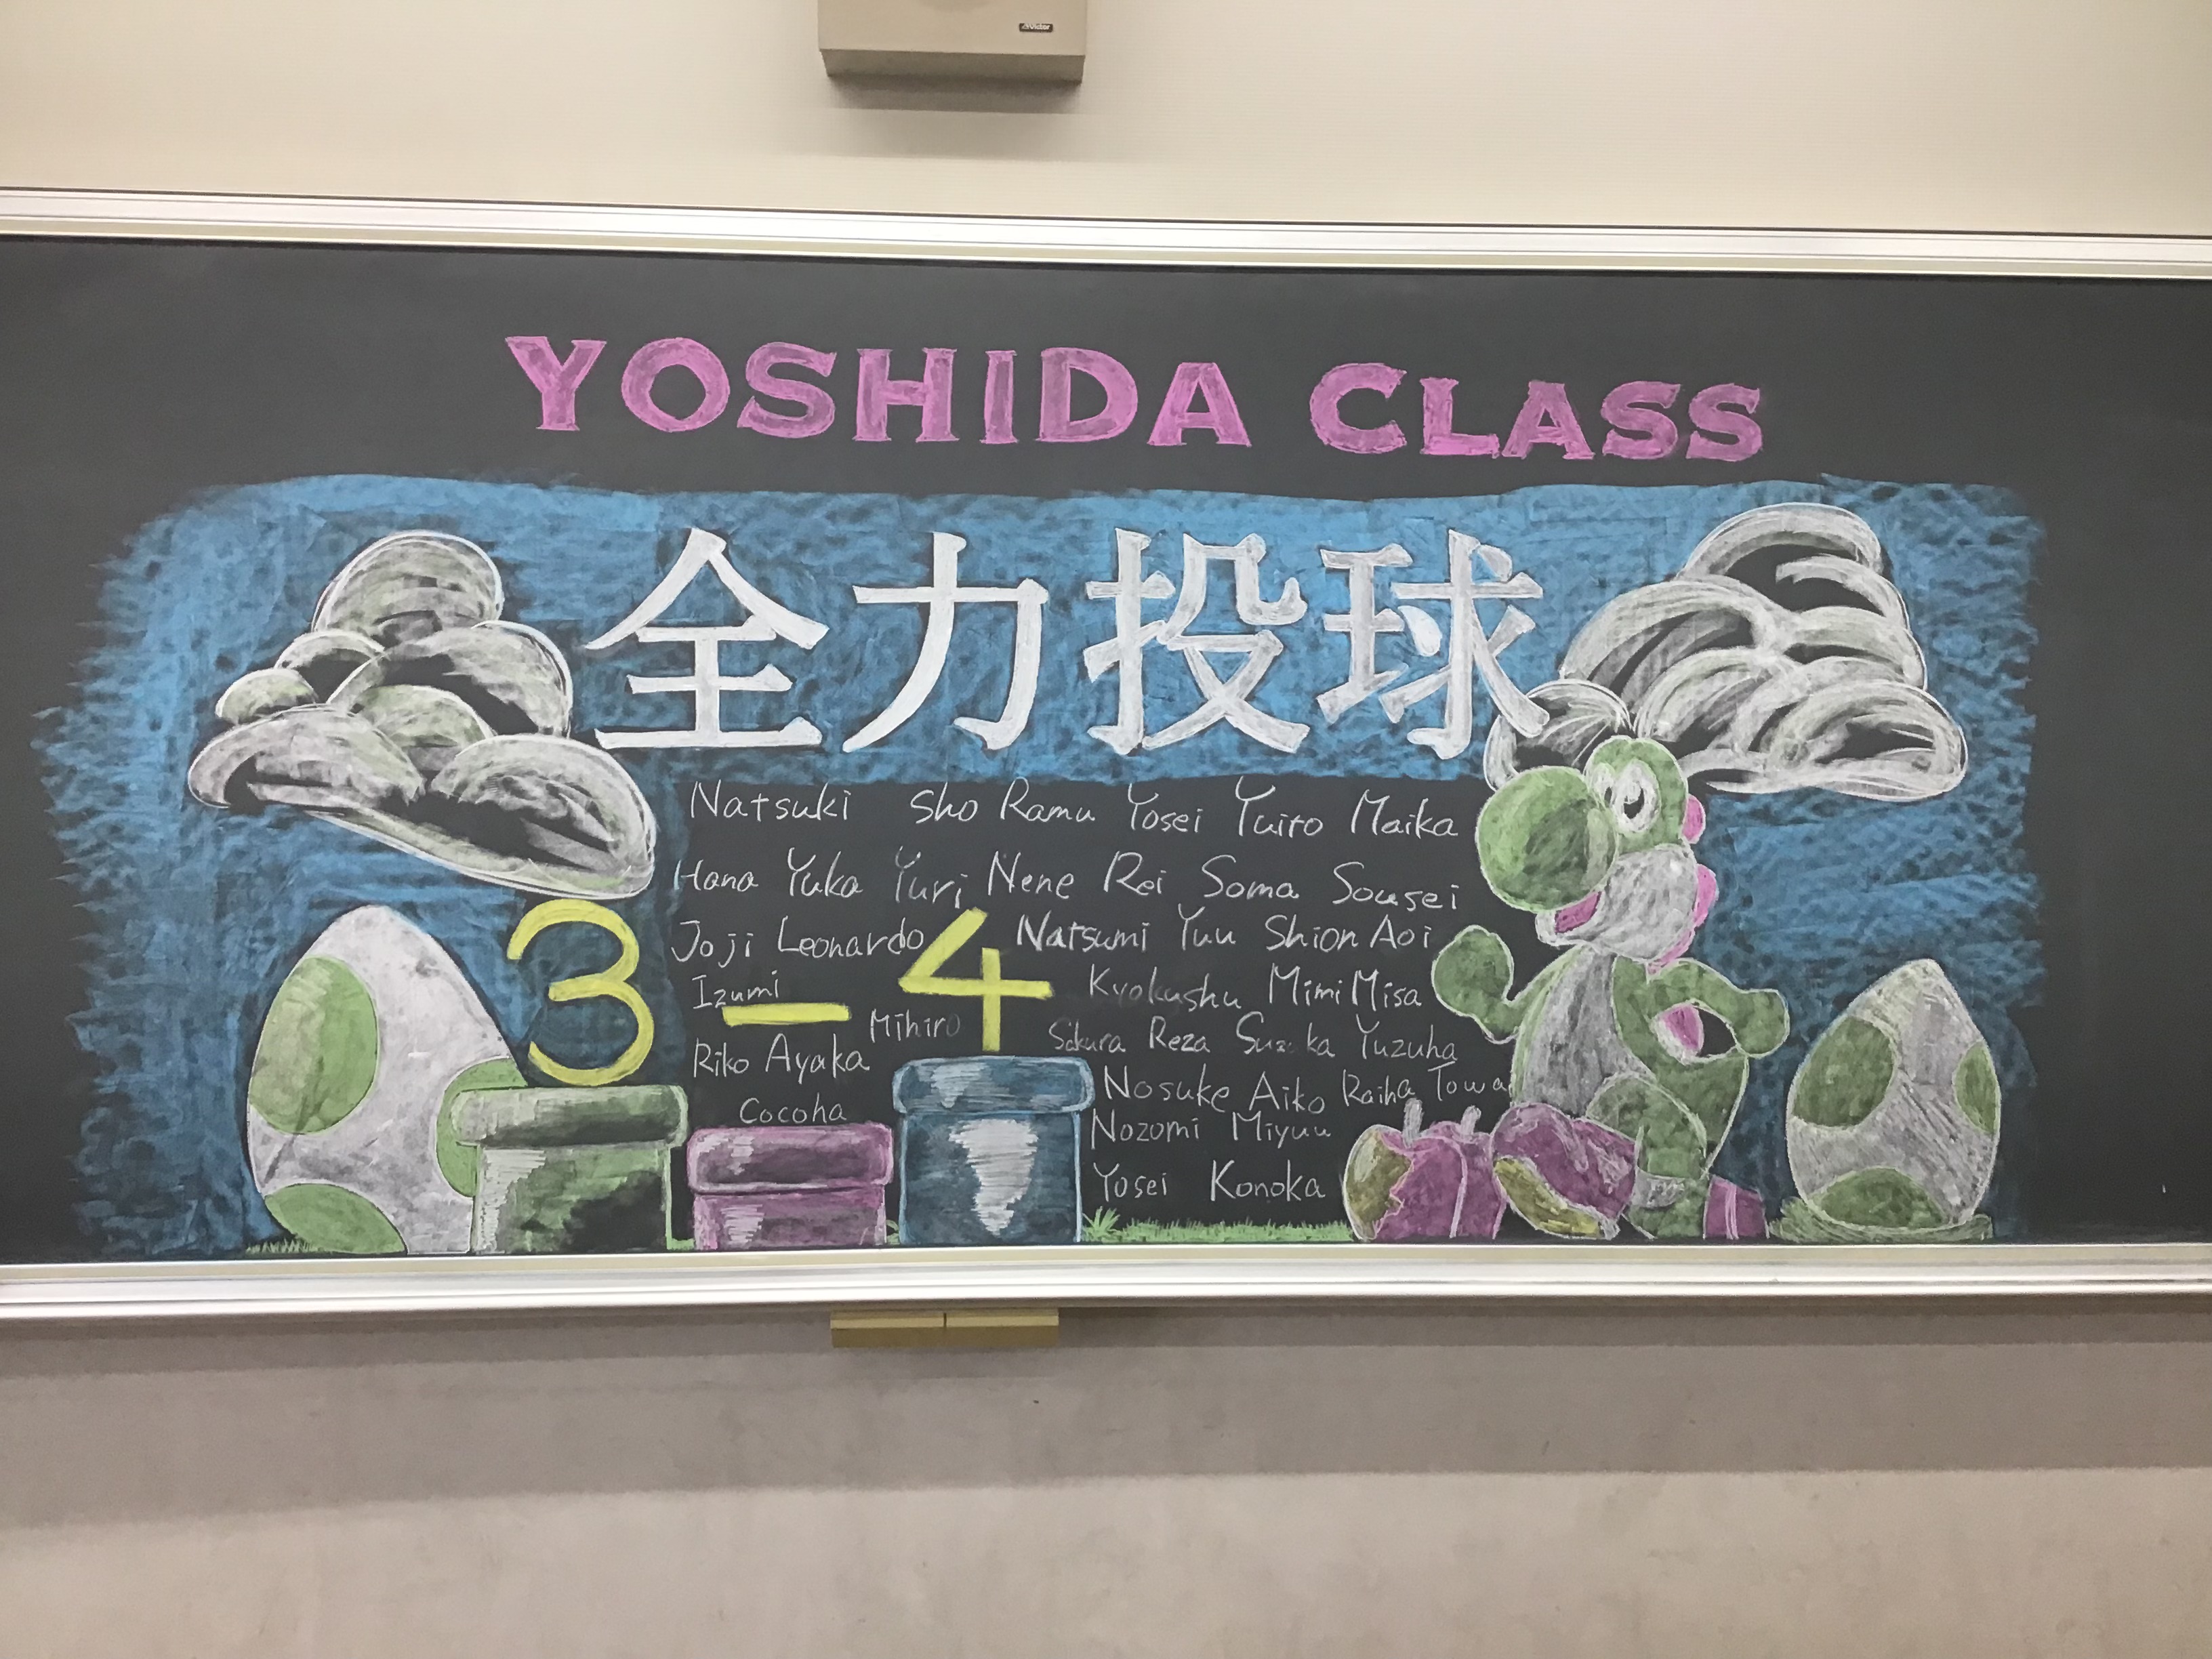 Victor
YOSHIDA CLASS
全力投球
Natsuki Sho Ramu Yosei Yuito Maika
Hana Yuka Yuri Nene Rei Soma Sousei
Joji Leonardo Natsumi Yuu Shion Aoi
Izumi Kyokushu Mimi Misa
3-4
Mihiro Sakura Reza Yuzuha
Riko Ayaka
Nosuke Aiko Raiha Towa
Cocoha
Nozomi Miyuu
Yosei Konoka